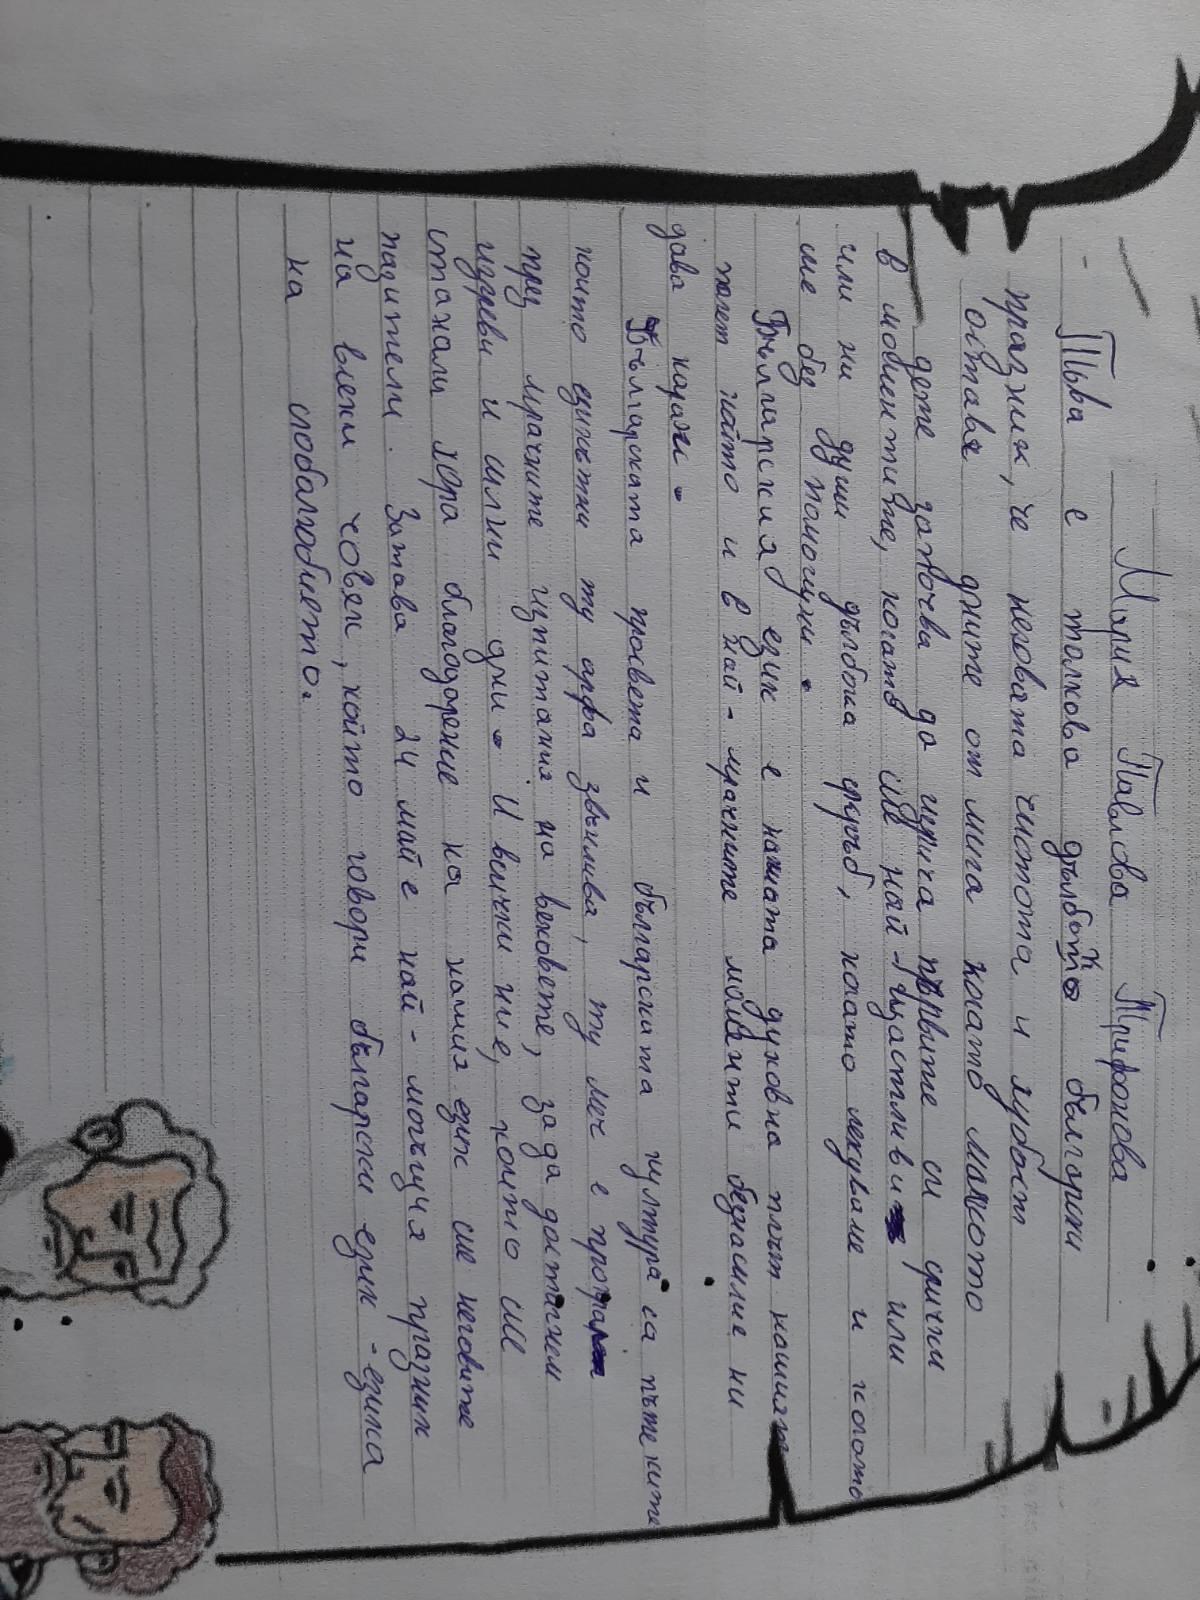 Мария Павлова Трифонова
- Това е толкова дълбоко български
празник, че неговата чистота и хубост
остава дните от мига когато малкото
дете започва да изрича първите си срички
в моментите, когато сме най-щастливи или
или ни души дълбока скръб, когато лекуваме и когато
ме без помощни.
Българския език е нашата духовна плът нашият
полет който и в най-мрачните моменти безнасилие ни
дава надежди.
Българската просвета и българската култура са пътеките
които единъжни ту арфа звънлива, ту меч е
през мрачните изпитания на вековете, за да достигнем
изгреви и силни дни. И всички ние, които сме
станали хора благодарение на нашия език сме неговите
пазители. Затава 24 май е най-могъщия празник
на всеки човек, който говори български език - езика
на словолюбието.